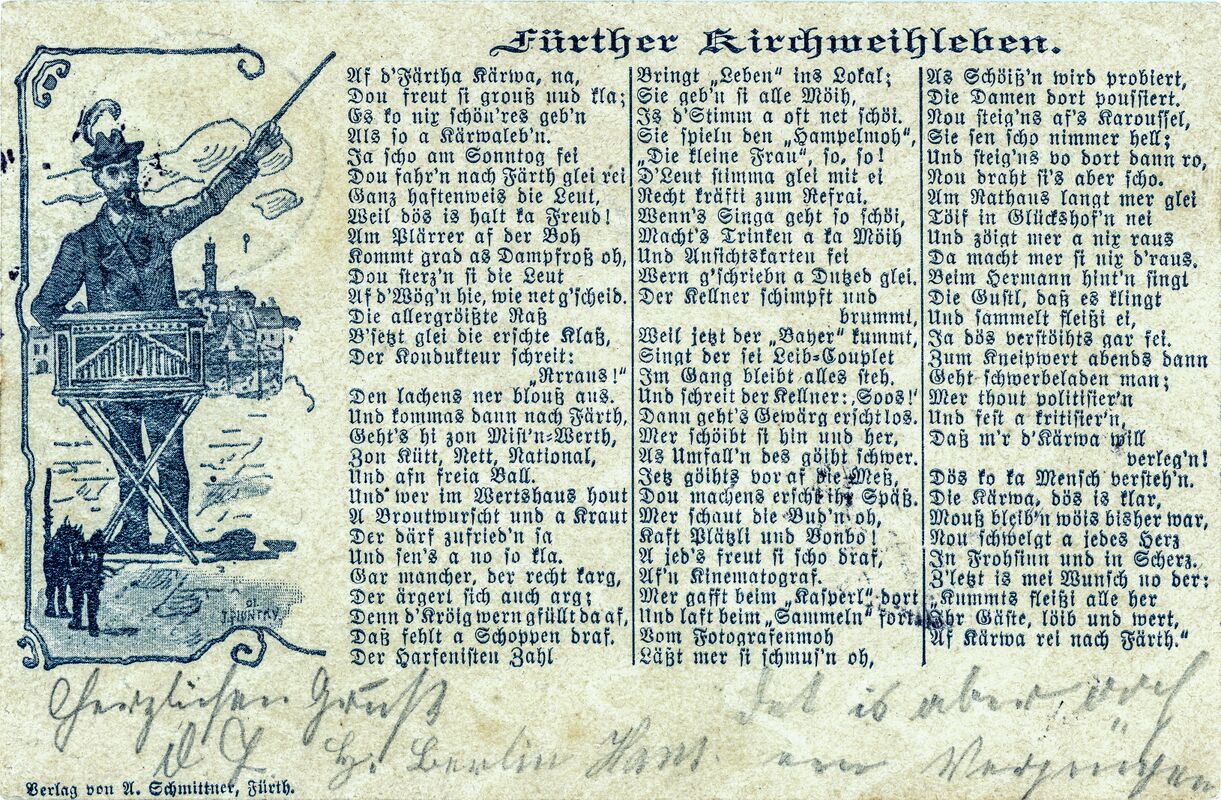 Fürther Kirchweihleben.
Af d'Färtha Kärwa, na,
Dou freut si grouß und kla;
Es ko nix schön'res geb'n
Als so a Kärwaleb'n.
Ja scho am Sonntog fei
Dou fahr'n nach Färth glei rei
Ganz haftenweis die Leut,
Weil dös is halt ka Freud!
Am Plärrer af der Boh
Kommt grad as Dampfroß oh,
Dou sterz'n si die Leut
Af d'Wög'n hie, wie net g'scheid.
Die allergröißte Raß
B'setzt glei die erschte Klaß,
Der Kondukteur schreit:
„Rrraus!"
Den lachens ner blouß aus.
Und kommas dann nach Färth,
Geht's hi zon Mist'n-Werth,
Zon Kütt, Nett, National,
Und afn freia Ball.
Und wer im Wertshaus hout
A Broutwurscht und a Kraut
Der därf zufried'n sa
Und sen's a no so kla.
Gar mancher, der recht karg,
Der ärgert sich auch arg;
Denn d'Kröig wern gfüllt da af,
Daß fehlt a Schoppen draf.
Der Harfenisten Zahl
Bringt „Leben" ins Lokal;
Sie geb'n si alle Möih,
Is d'Stimm a oft net schöi.
Sie spieln den „Hampelmoh",
„Die kleine Frau", so, so!
D'Leut stimma glei mit ei
Recht kräfti zum Refrai.
Wenn's Singa geht so schöi,
Macht's Trinken a ka Möih
Und Ansichtskarten fei
Wern g'schriebn a Dutzed glei.
Der Kellner schimpft und
brummt,
Weil jetzt der „Bayer" kummt,
Singt der sei Leib-Couplet
Im Gang bleibt alles steh.
Und schreit der Kellner: „Soos!'
Dann geht's Gewärg erscht los.
Mer schöibt si hin und her,
As Umfall'n des göiht schwer.
Jetz göihts vor af die Meß,
Dou machens erscht ihr Späß.
Mer schaut die Bud'n oh,
Kaft Plätzli und Bonbo!
A jed's freut si scho draf,
Af'n Kinematograf.
Mer gafft beim „Kasperl" dort
Und laft beim „Sammeln" fort
Vom Fotografenmoh
Läßt mer si schmus'n oh,
As Schöiß'n wird probiert,
Die Damen dort poussiert.
Nou steig'ns af's Karoussel,
Sie sen scho nimmer hell;
Und steig'ns vo dort dann ro,
Nou draht si's aber scho.
Am Rathaus langt mer glei
Töif in Glückshof'n nei
Und zöigt mer a nix raus
Da macht mer si nix d'raus.
Beim Hermann hint'n singt
Die Gustl, daß es klingt
Und sammelt fleißi ei,
Ja dös verstöihts gar fei.
Zum Kneipwert abends dann
Geht schwerbeladen man;
Mer thout politisier'n
Und fest a kritisier'n,
Daß m'r d'Kärwa will
verleg'n!
Dös ko ka Mensch versteh'n.
Die Kärwa, dös is klar,
Mouß bleib'n wöis bisher war,
Nou schwelgt a jedes Herz
In Frohsinn und in Scherz.
Z'letzt is mei Wunsch no der:
„Kummts fleißi alle her
Ihr Gäste, löib und wert,
Af Kärwa rei nach Färth."
Herzlichen Gruß
H. Berlin Hans.
Det is aber och
een Vergnügen
Verlag von A. Schmittner, Fürth.